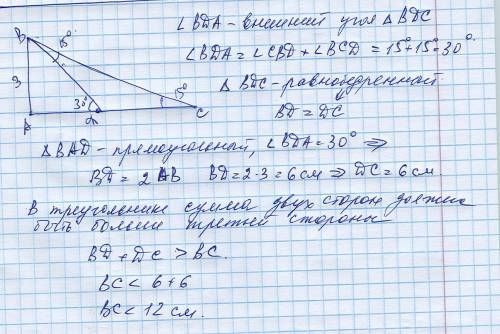 B
15°
3
30°
15°
A
D
C
∠BDA - внешний угол △BDC
∠BDA = ∠CBD + ∠BCD = 15°+15°=30°.
△BDC - равнобедренный
BD = DC
△BAD - прямоугольный, ∠BDA = 30° ⇒
BD = 2AB BD = 2·3 = 6 см ⇒ DC = 6 см
В треугольнике сумма двух сторон должна
быть больше третьей стороны
BD + DC > BC.
BC < 6+6
BC < 12 см.